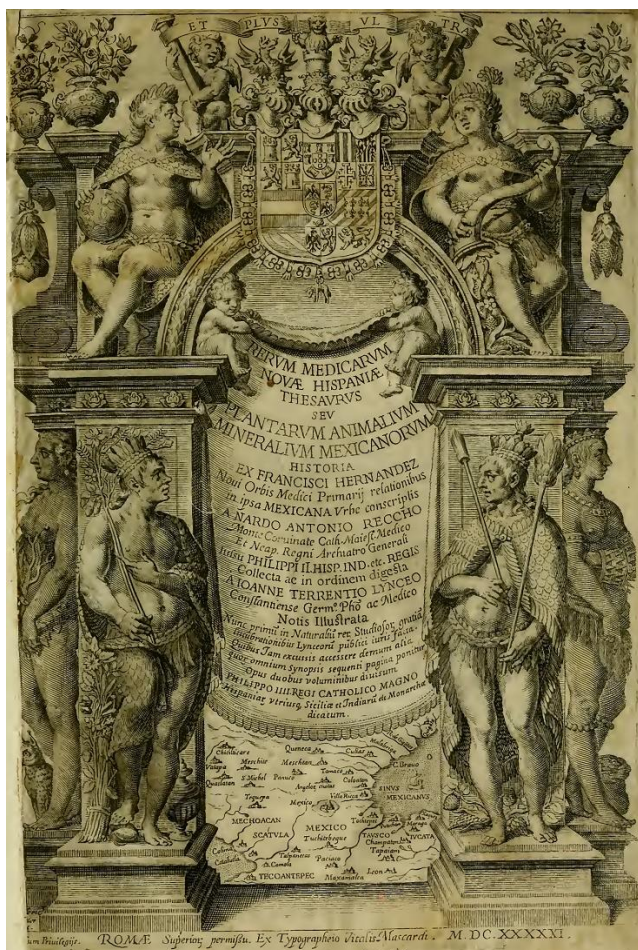 ET PLVS VL TR
RERVM MEDICARVM
NOVÆ HISPANIÆ
THESAVRVS
SEV
PLANTARVM ANIMALIVM
MINERALIVM MEXICANORVM
HISTORIA
EX FRANCISCI HERNANDEZ
Noui Orbis Medici Primarij relationibus
in ipsa MEXICANA Vrbe conscriptis
A NARDO ANTONIO RECCHO
Monte Coruinate Cath. Maiest. Medico
Et Neap. Regni Archiatro Generali
Iussu PHILIPPI II. HISP. IND. etc. REGIS
Collecta ac in ordinem digesta
A IOANNE TERRENTIO LYNCEO
Constantiense Germ.º Phõ ac Medico
Notis Illustrata
Nunc primũ in Naturaliũ reꝝ Studiosoꝝ gratiã
lucubrationibus Lynceorũ publici iuris facta.
Quibus Jam excussis accessere demum alia
quor. omnium Synopsis sequenti pagina ponitur
Opus duobus voluminibus diuisum
PHILIPPO IIII. REGI CATHOLICO MAGNO
Hispaniar. vtriusq. Siciliæ et Indiarũ etc. Monarchæ
dicatum.
Queneca
Cullar
Meschite
Meschiten
C. Brauo
S. Michel
Panuco
Tamaco
SINVS
MEXICANVS
Mexico
Villa Ricca
MECHOACAN
MEXICO
SCATVLA
Tuchitebeque
TAVSCO
IVCATA
Champaton
Colima
Pacuca
Leon
TECOANTEPEC
um Priuilegijs. ROMÆ Superioꝝ permissu. Ex Typographeio Vitalis Mascardi. M. DC. XXXXXI.